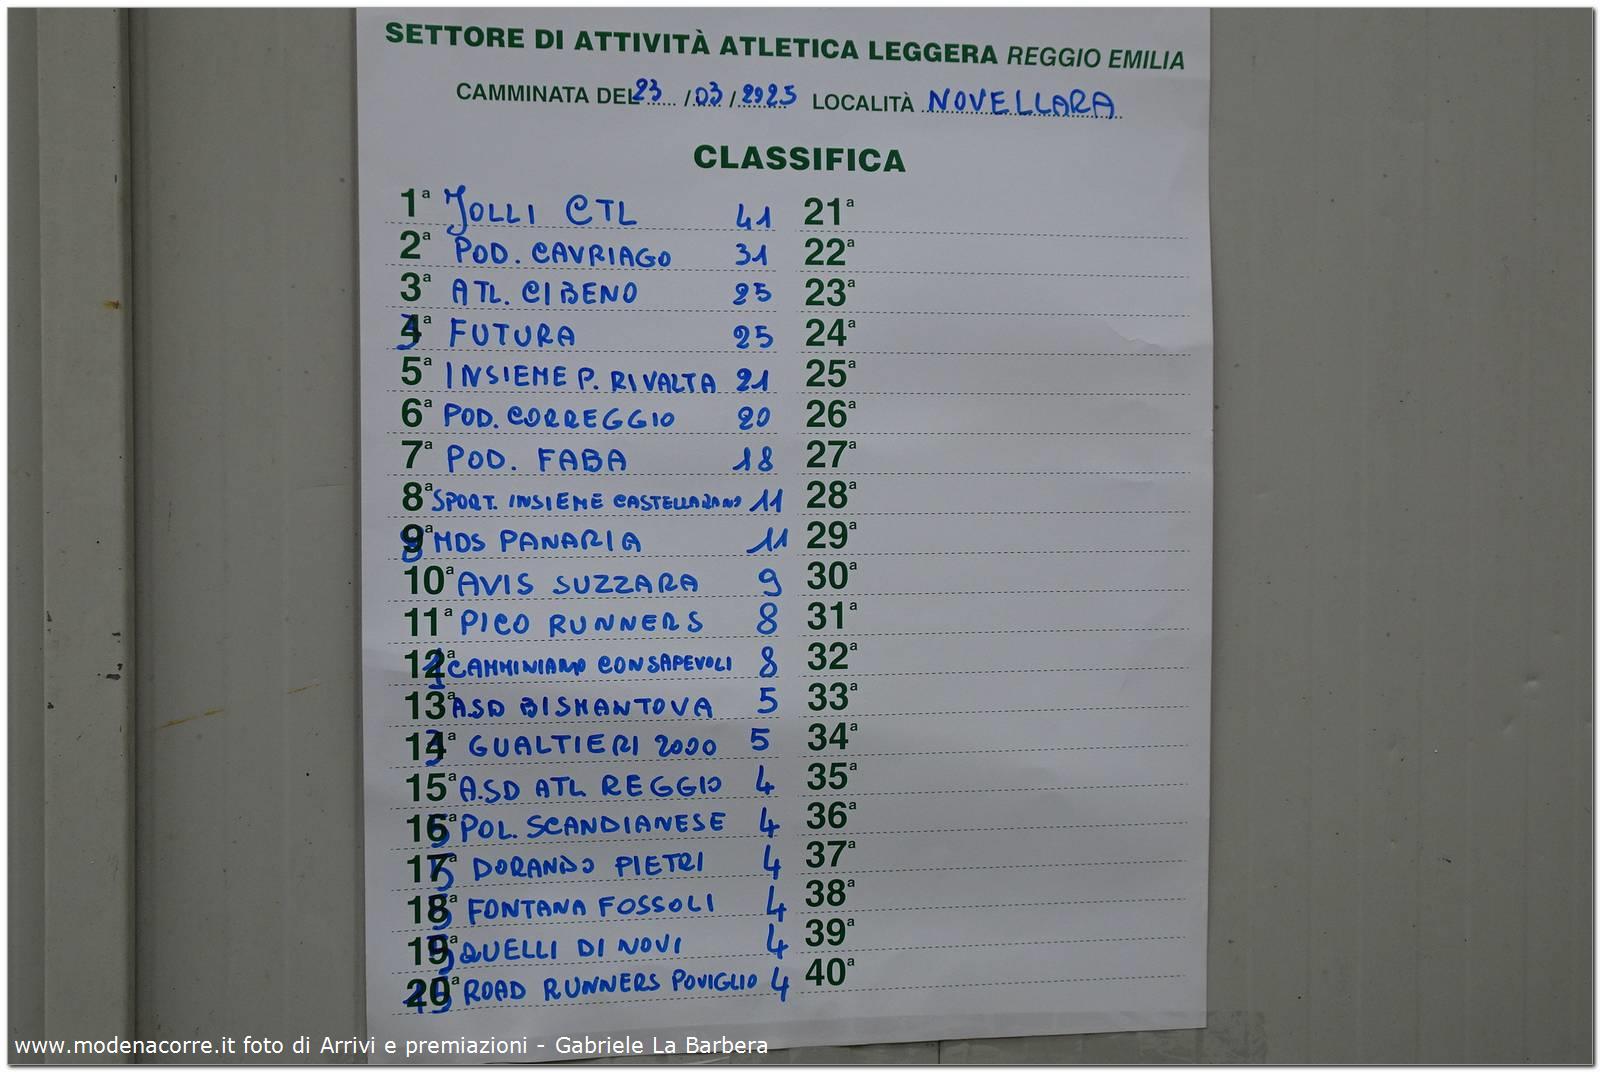 SETTORE DI ATTIVITÀ ATLETICA LEGGERA REGGIO EMILIA
CAMMINATA DEL 23 /03 /2025 LOCALITÀ NOVELLARA
CLASSIFICA
1ª JOLLI CTL 41
2ª POD. CAVRIAGO 31
3ª ATL. CIBENO 25
4ª FUTURA 25
5ª INSIEME P. RIVALTA 21
6ª POD. CORREGGIO 20
7ª POD. FABA 18
8ª SPORT. INSIEME CASTELLARANO 11
9ª MDS PANARIA 11
10ª AVIS SUZZARA 9
11ª PICO RUNNERS 8
12ª CAMMINIAMO CONSAPEVOLI 8
13ª ASD BISMANTOVA 5
14ª GUALTIERI 2000 5
15ª A.SD ATL REGGIO 4
16ª POL. SCANDIANESE 4
17ª DORANDO PIETRI 4
18ª FONTANA FOSSOLI 4
19ª QUELLI DI NOVI 4
20ª ROAD RUNNERS POVIGLIO 4
21ª
22ª
23ª
24ª
25ª
26ª
27ª
28ª
29ª
30ª
31ª
32ª
33ª
34ª
35ª
36ª
37ª
38ª
39ª
40ª
www.modenacorre.it foto di Arrivi e premiazioni - Gabriele La Barbera